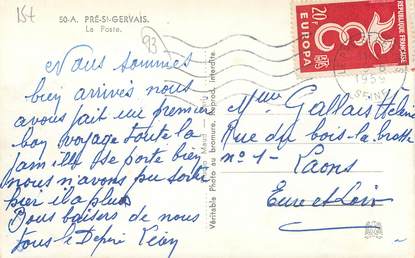 15t
50-A. PRÉ-St-GERVAIS.
La Poste.
93
Nous sommes
bien arrivés nous
avons fait un premier
bon voyage toute la
famille se porte bien
nous n'avons pu sortir
hier il a plus
Bons baisers de nous
tous
Véritable Photo au bromure. Reprod. interdite.
REPUBLIQUE FRANÇAISE
20F
EUROPA
1958
SEINE
Mme Gallais Hélène
Rue du bois le
n° 1 - Laons
Eure et Loir